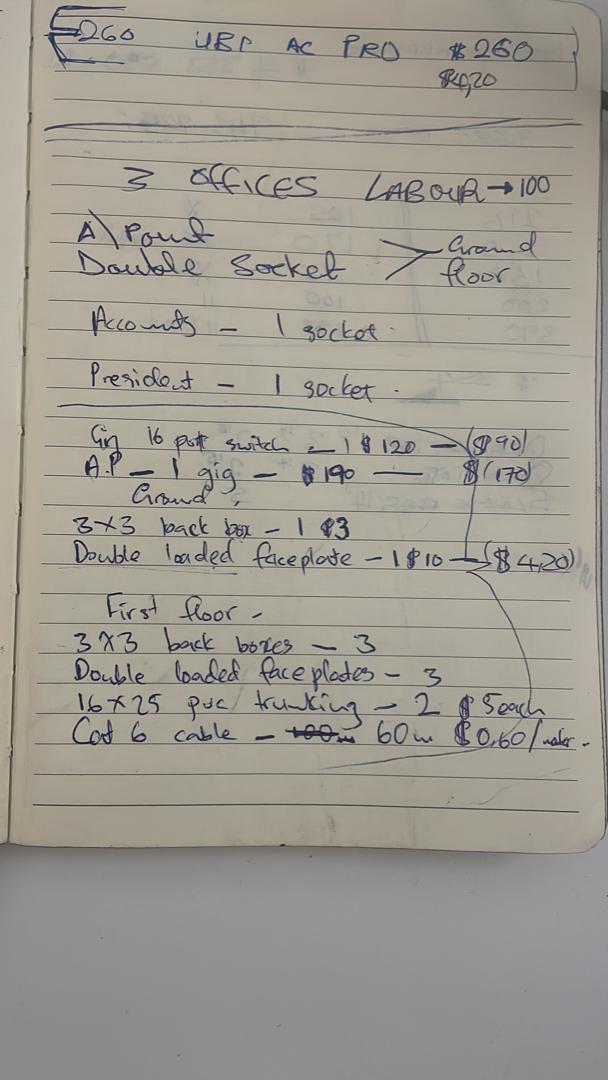 260 UBP AC PRO $260
$4,20
3 OFFICES LABOUR → 100
A\Point
Double Socket > Ground floor
Accounts - 1 socket.
President - 1 socket.
Gig 16 port switch - 1 $120 - ($90)
A.P - 1 gig - $190 - $(170)
Ground,
3x3 back box - 1 $3
Double loaded faceplate - 1 $10 - ($4,20)
First floor -
3x3 back boxes - 3
Double loaded faceplates - 3
16x25 pvc trunking - 2 $5each
Cat 6 cable - 100m 60m $0.60/meter.